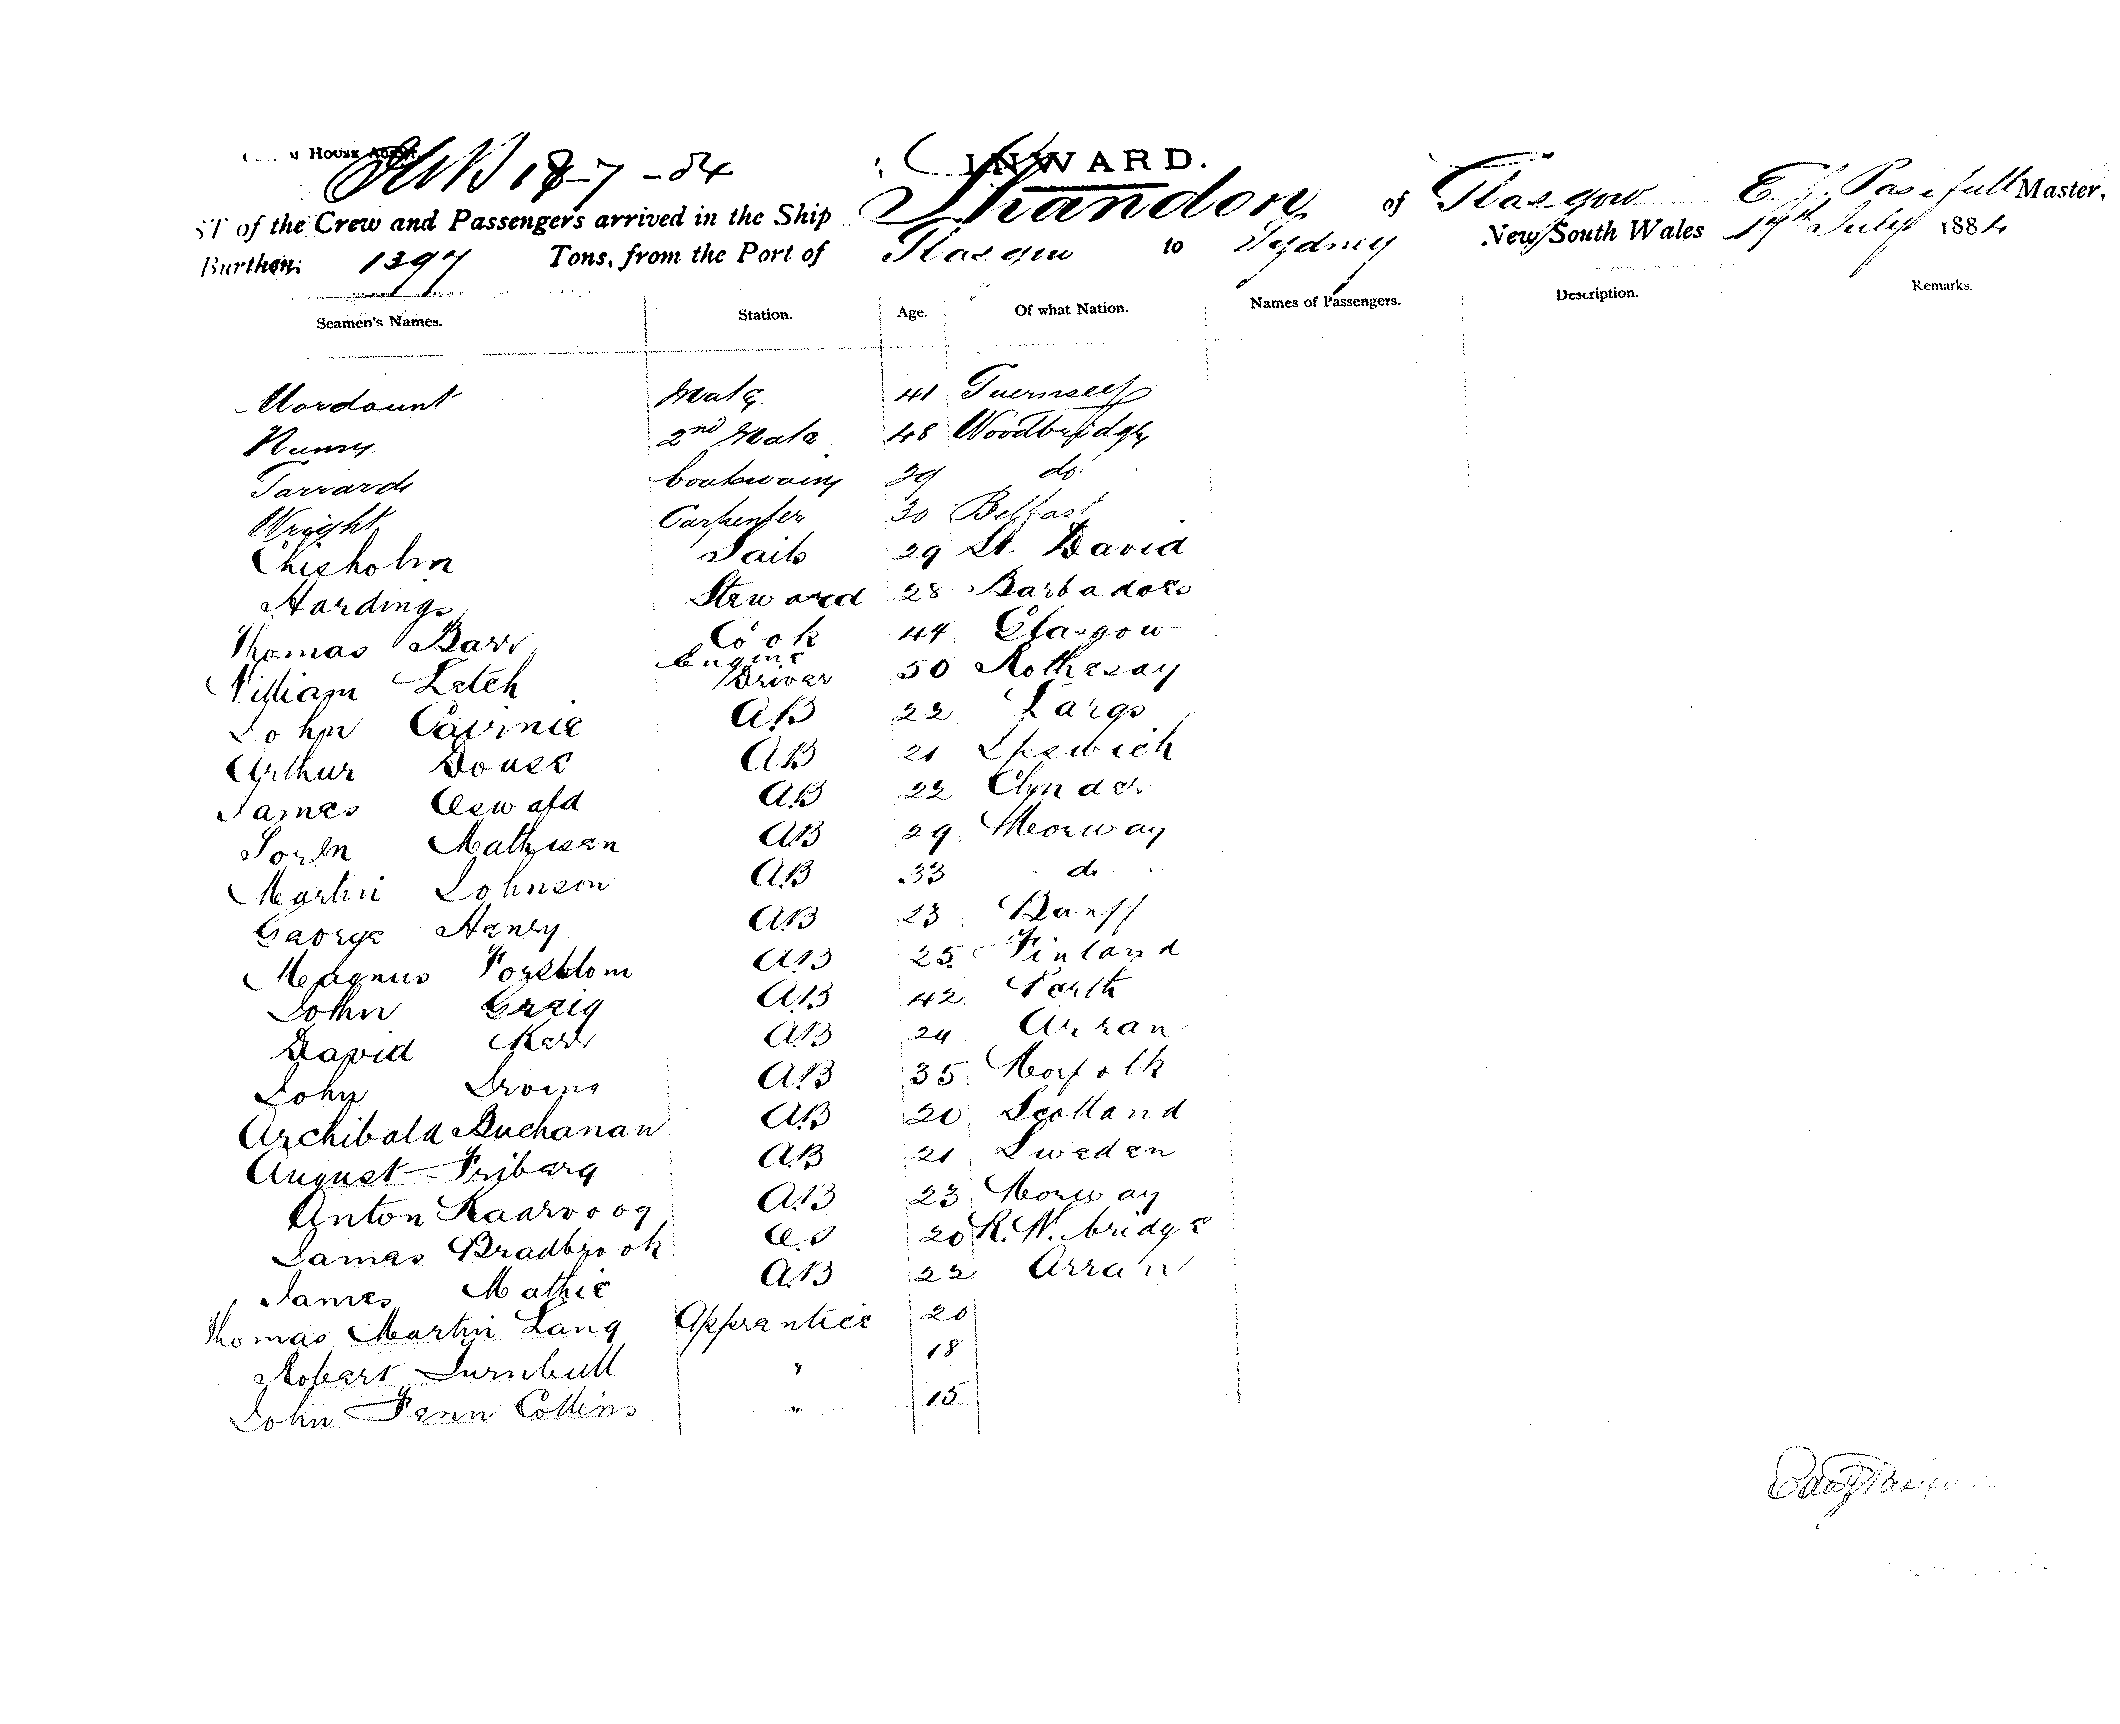 House
18-7-84
INWARD.
ST of the Crew and Passengers arrived in the Ship Shandon of Glasgow E. J. Master,
Burthen: 1397 Tons, from the Port of Glasgow to Sydney New South Wales 17th July 1884
Seamen's Names. Station. Age. Of what Nation. Names of Passengers. Description. Remarks.
Mordaunt Mate 41 Guernsey
2nd Mate 48 Woodbridge
Garrard boatswain 29 do
Wright Carpenter 30 Belfast
Chisholm Sails 29 St. David
Hardings Steward 28 Barbadoes
Thomas Barr Cook 44 Glasgow
William Leteh Engine Driver 50 Rothesay
John Cairnie AB 22 Largs
Arthur Douse AB 21 Ipswich
James Oswald AB 22 Clynder
Soren Mathisen AB 29 Norway
Martin Johnson AB 33 do
George Henry AB 23 Banff
Magnus Forsblom AB 25 Finland
John Greig AB 42 Perth
David Kerr AB 24 Arran
John Irving AB 35 Norfolk
Archibald Buchanan AB 20 Scotland
August Friberg AB 21 Sweden
Anton Kaarvoog AB 23 Norway
James Bradbrook O.S 20 R. W. bridge
James Mathie AB 22 Arran
Thomas Martin Lang Apprentice 20
Robert Turnbull " 18
John Fenn Collins " 15